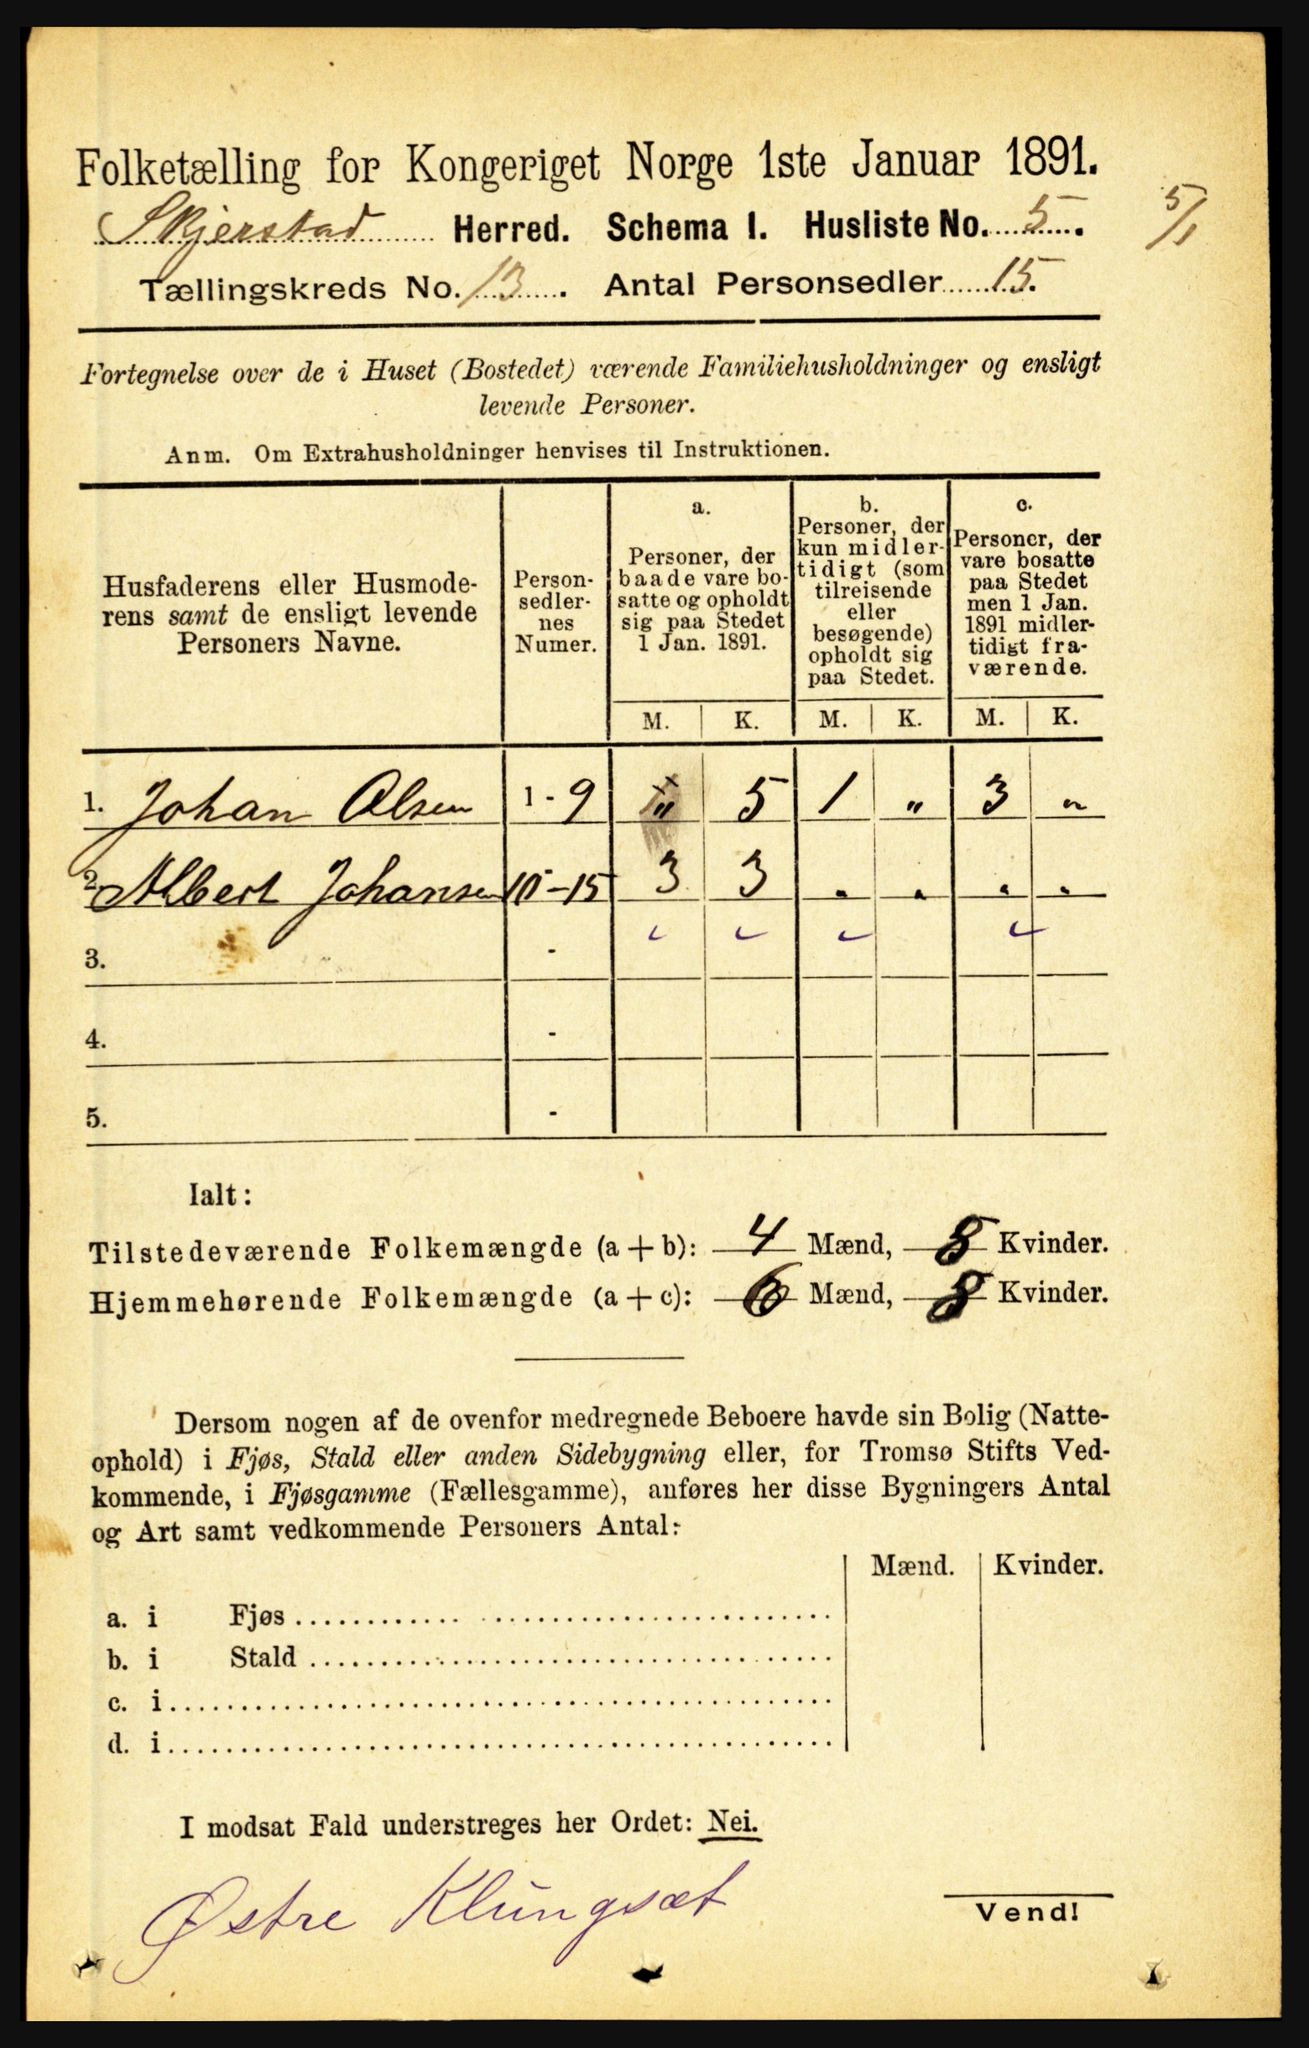 Folketælling for Kongeriget Norge 1ste Januar 1891.
Skjerstad Herred. Schema I. Husliste No. 5.
5/1
Tællingskreds No. 13. Antal Personsedler 15.
Fortegnelse over de i Huset (Bostedet) værende Familiehusholdninger og ensligt
levende Personer.
Anm. Om Extrahusholdninger henvises til Instruktionen.
Husfaderens eller Husmode-
rens samt de ensligt levende
Personers Navne.
Person-
sedler-
nes
Numer.
a.
Personer, der
baade vare bo-
satte og opholdt
sig paa Stedet
1 Jan. 1891.
b.
Personer, der
kun midler-
tidigt (som
tilreisende
eller
besøgende)
opholdt sig
paa Stedet.
c.
Personer, der
vare bosatte
paa Stedet
men 1 Jan.
1891 midler-
tidigt fra-
værende.
M. K. M. K. M. K.
1. Johan Olsen 1 - 9 " 5 1 " 3 "
2. Albert Johansen 10 - 15 3 3 " " " "
3. -
4. -
5. -
Ialt:
Tilstedeværende Folkemængde (a + b): 4 Mænd, 8 Kvinder.
Hjemmehørende Folkemængde (a + c): 6 Mænd, 8 Kvinder.
Dersom nogen af de ovenfor medregnede Beboere havde sin Bolig (Natte-
ophold) i Fjøs, Stald eller anden Sidebygning eller, for Tromsø Stifts Ved-
kommende, i Fjøsgamme (Fællesgamme), anføres her disse Bygningers Antal
og Art samt vedkommende Personers Antal:
Mænd. Kvinder.
a. i Fjøs
b. i Stald
c. i
d. i
I modsat Fald understreges her Ordet: Nei.
Østre Klungsæt
Vend!